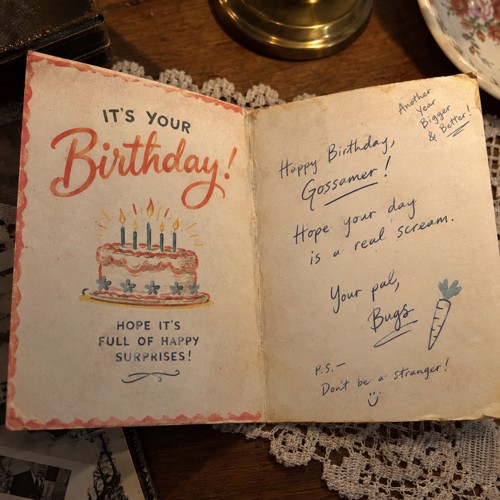 IT'S YOUR
Birthday!
HOPE IT'S
FULL OF HAPPY
SURPRISES!
Another
Year
Bigger
& Better!
Happy Birthday,
Gossamer!
Hope your day
is a real scream.
Your pal,
Bugs
P.S.—
Don't be a stranger!